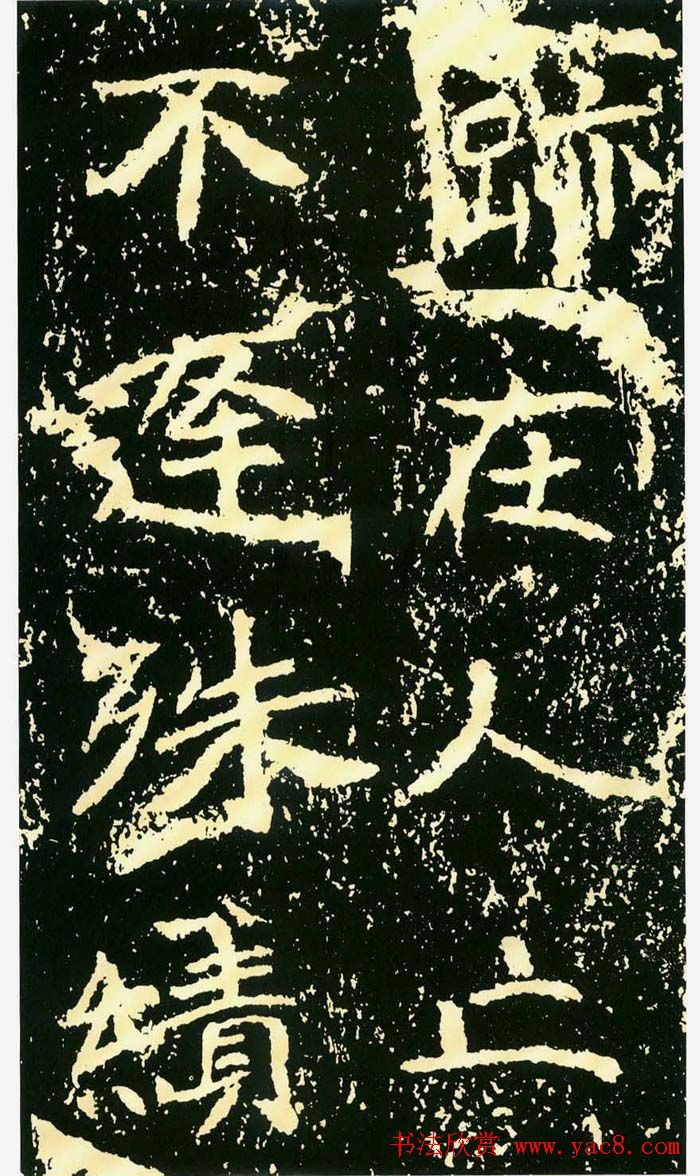 跡在人亡
不逢殊績
书法欣赏 www.yac8.com